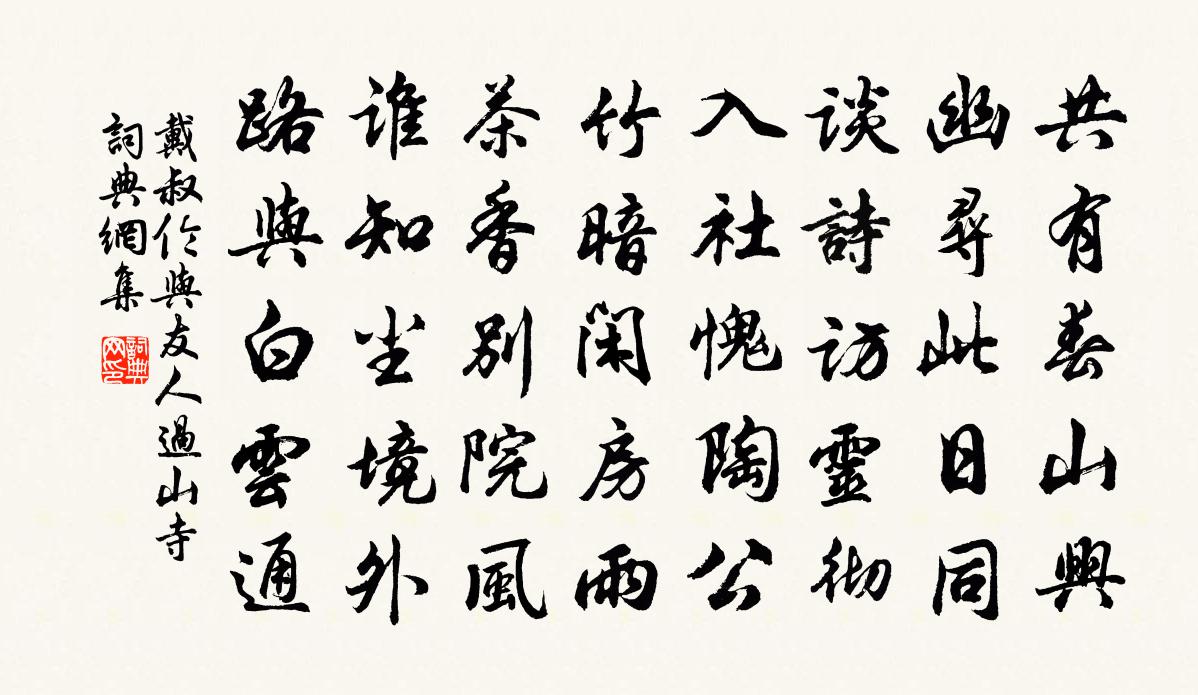 共有春山興
幽尋此日同
谈詩訪靈彻
入社愧陶公
竹暗闲房雨
茶香别院風
谁知尘境外
路與白雲通
戴叔伦與友人過山寺
詞典網集
詞典
网印